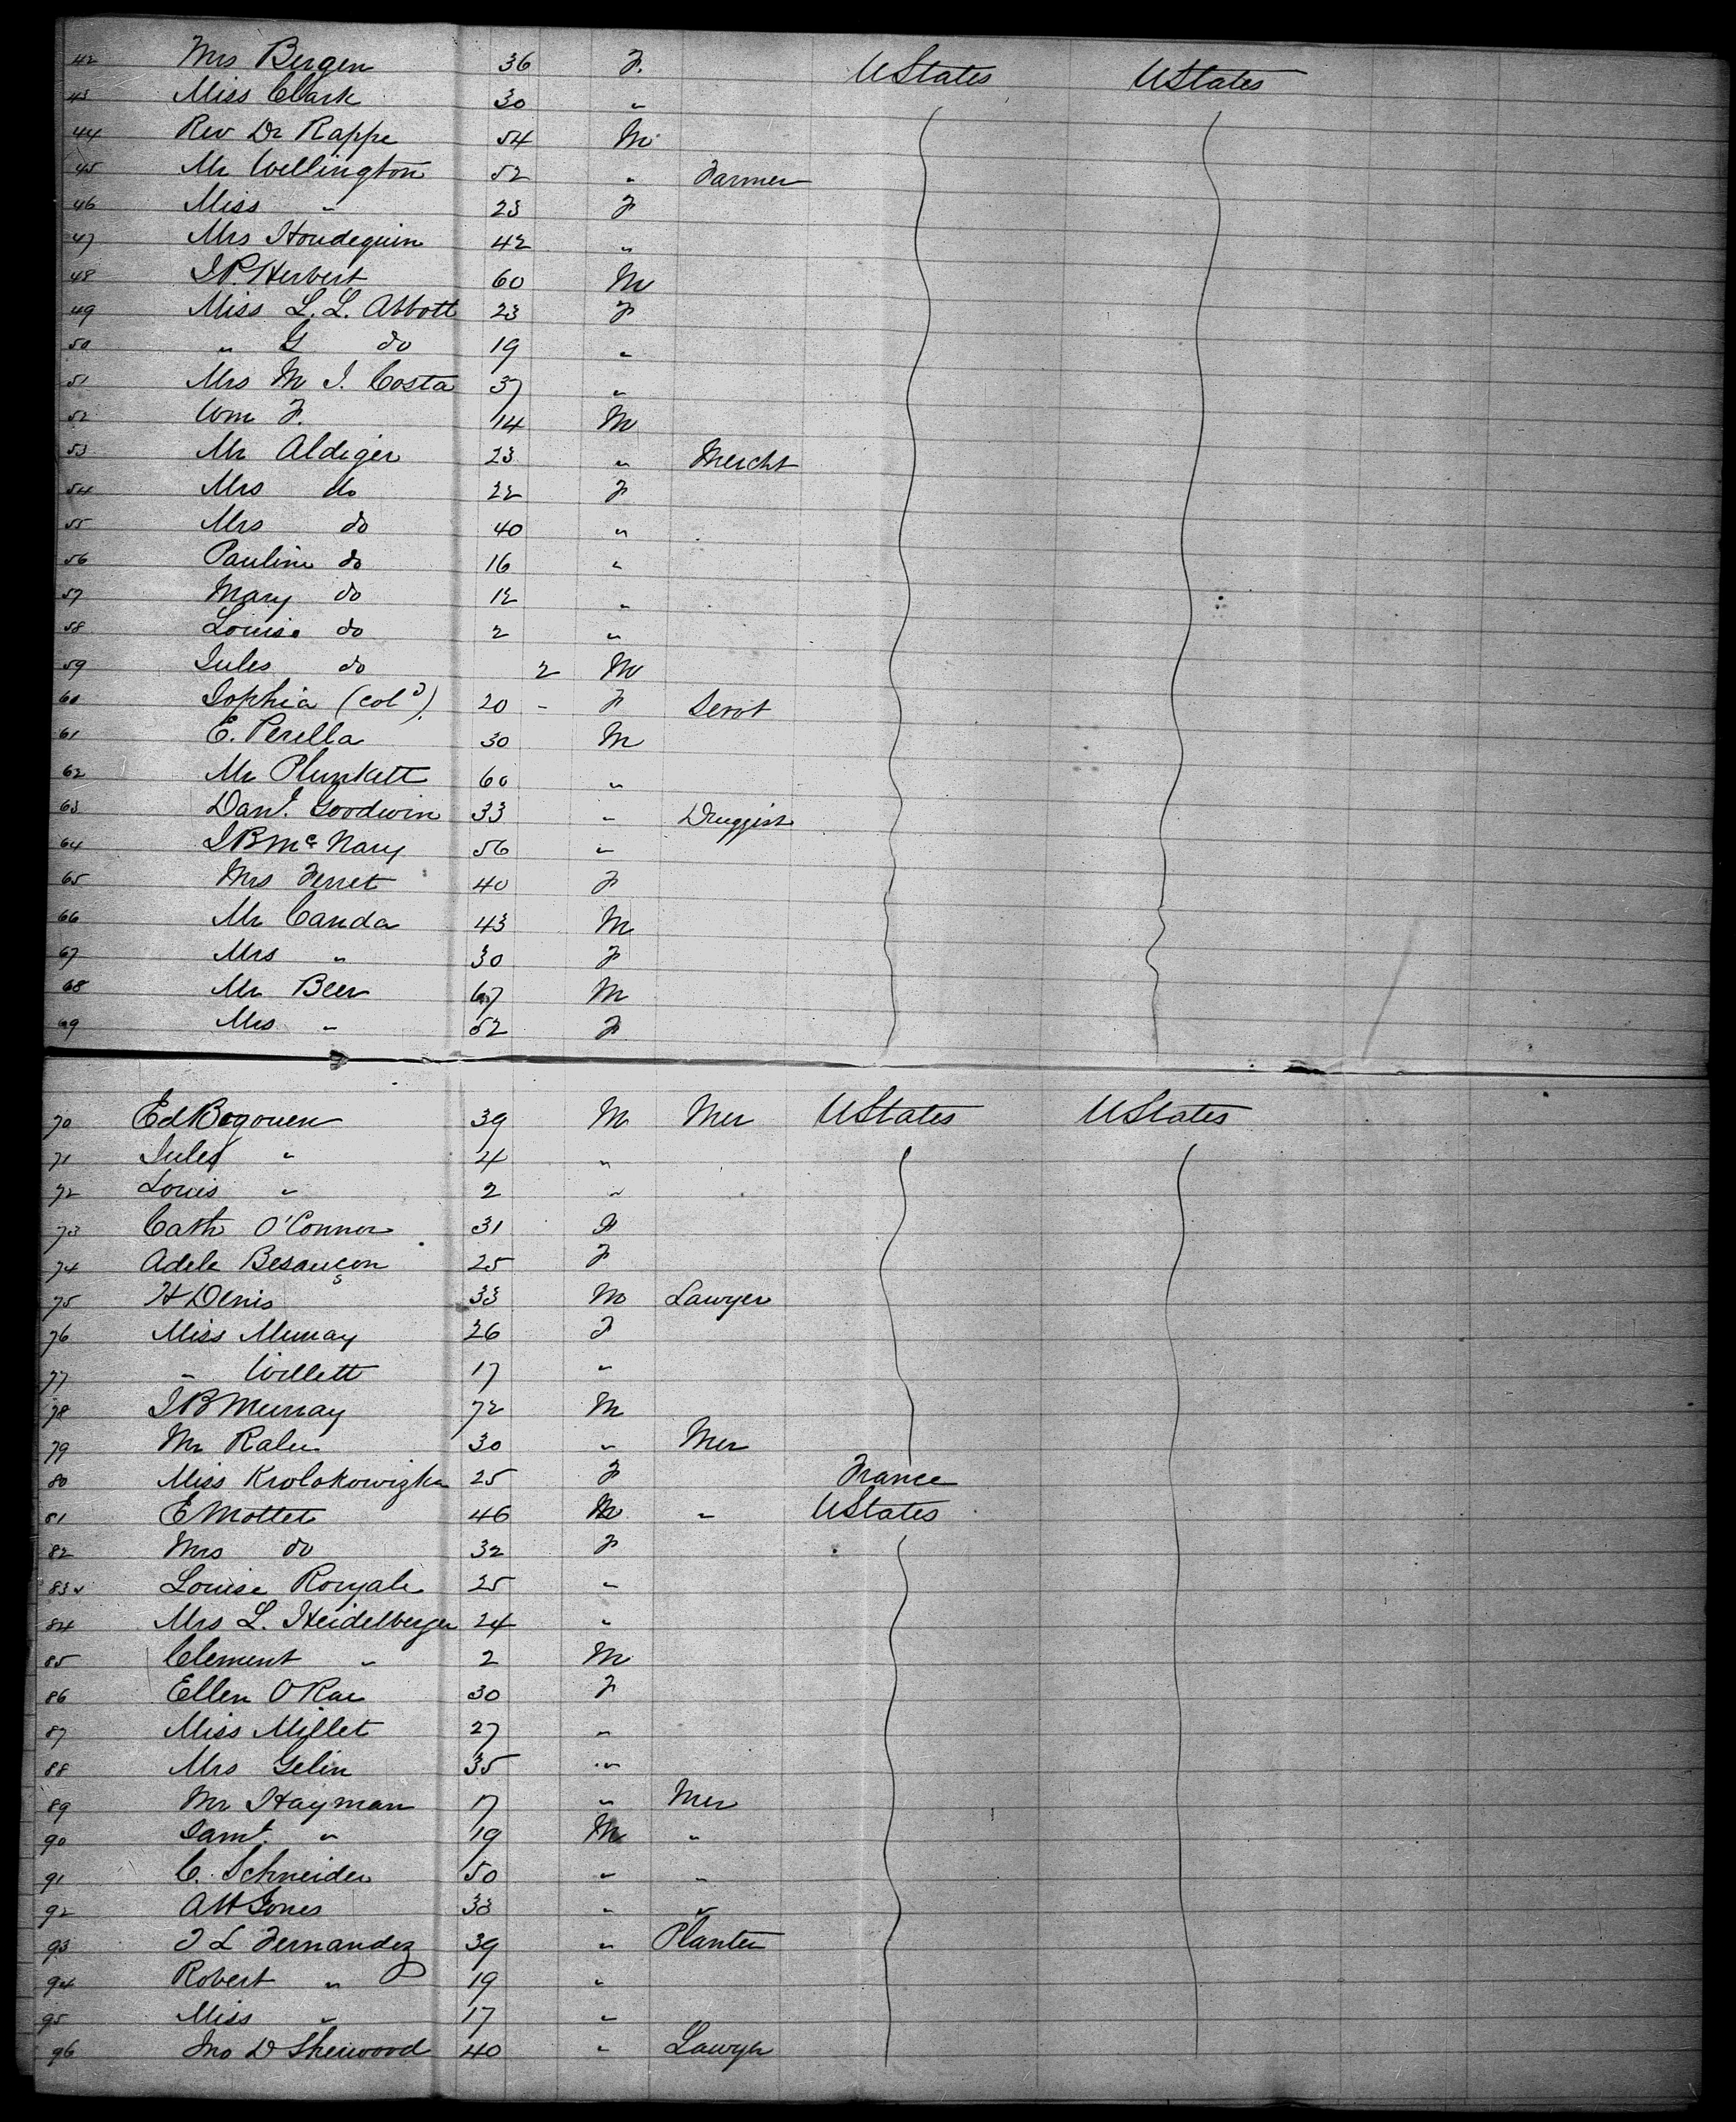 42 Mrs Bergen 36 F. UStates UStates
43 Miss Clark 30 "
44 Rev Dr Rappe 54 M
45 Mr Wellington 52 " Farmer
46 Miss " 23 F
47 Mrs Houdequin 42 "
48 J P. Herbert 60 M
49 Miss L. L. Abbott 23 F
50 " G do 19 "
51 Mrs M J. Costa 37 "
52 Wm F. 14 M
53 Mr Aldiger 23 " Mercht
54 Mrs do 22 F
55 Mrs do 40 "
56 Pauline do 16 "
57 Mary do 12 "
58 Louise do 2 "
59 Jules do 2 M
60 Sophia (cold). 20 - F Servt
61 E. Perilla 30 M
62 Mr Plunkett 60 "
63 Danl. Goodwin 33 " Druggist
64 J B McNary 56 "
65 Mrs Ferret 40 F
66 Mr Canda 43 M
67 Mrs " 30 F
68 Mr Beer 67 M
69 Mrs " 52 F
70 Ed Begouen 39 M Mer UStates UStates
71 Jules " 4 "
72 Louis " 2 "
73 Cath O'Connor 31 F
74 Adele Besançon 25 F
75 H Denis 33 M Lawyer
76 Miss Murray 26 F
77 " Willett 17 "
78 J B Murray 72 M
79 Mr Ralu 30 " Mer
80 Miss Krolokowizka 25 F France
81 E Mottet 46 M " UStates
82 Mrs do 32 F
83 Louise Royale 25 "
84 Mrs L. Heidelberger 24 "
85 Clement " 2 M
86 Ellen O Rae 30 F
87 Miss Millet 27 "
88 Mrs Gelin 35 "
89 Mr Hayman 17 " Mer
90 Saml. " 19 M "
91 C. Schneider 50 " "
92 A H Jones 38 " "
93 J L Fernandez 39 " Planter
94 Robert " 19 "
95 Miss " 17 "
96 Jno D Sherwood 40 " Lawyer